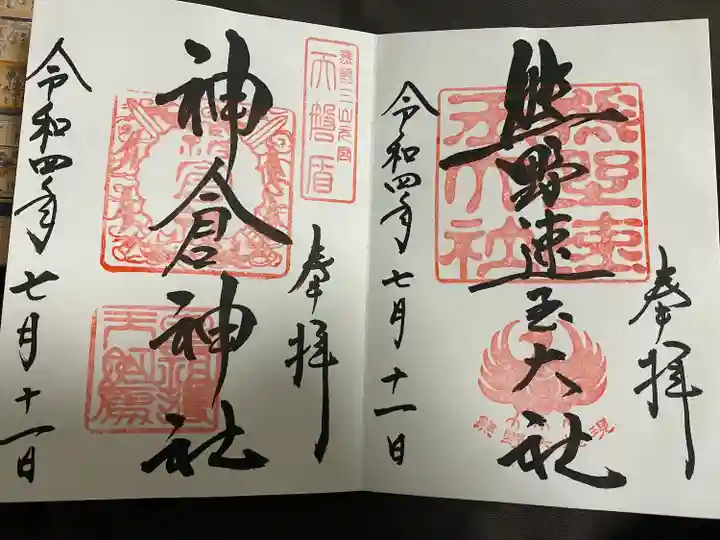 奉拝
熊野速玉大社
令和四年七月十一日
奉拝
神倉神社
令和四年七月十一日
熊野三山元宮
天磐盾
熊野速玉大社